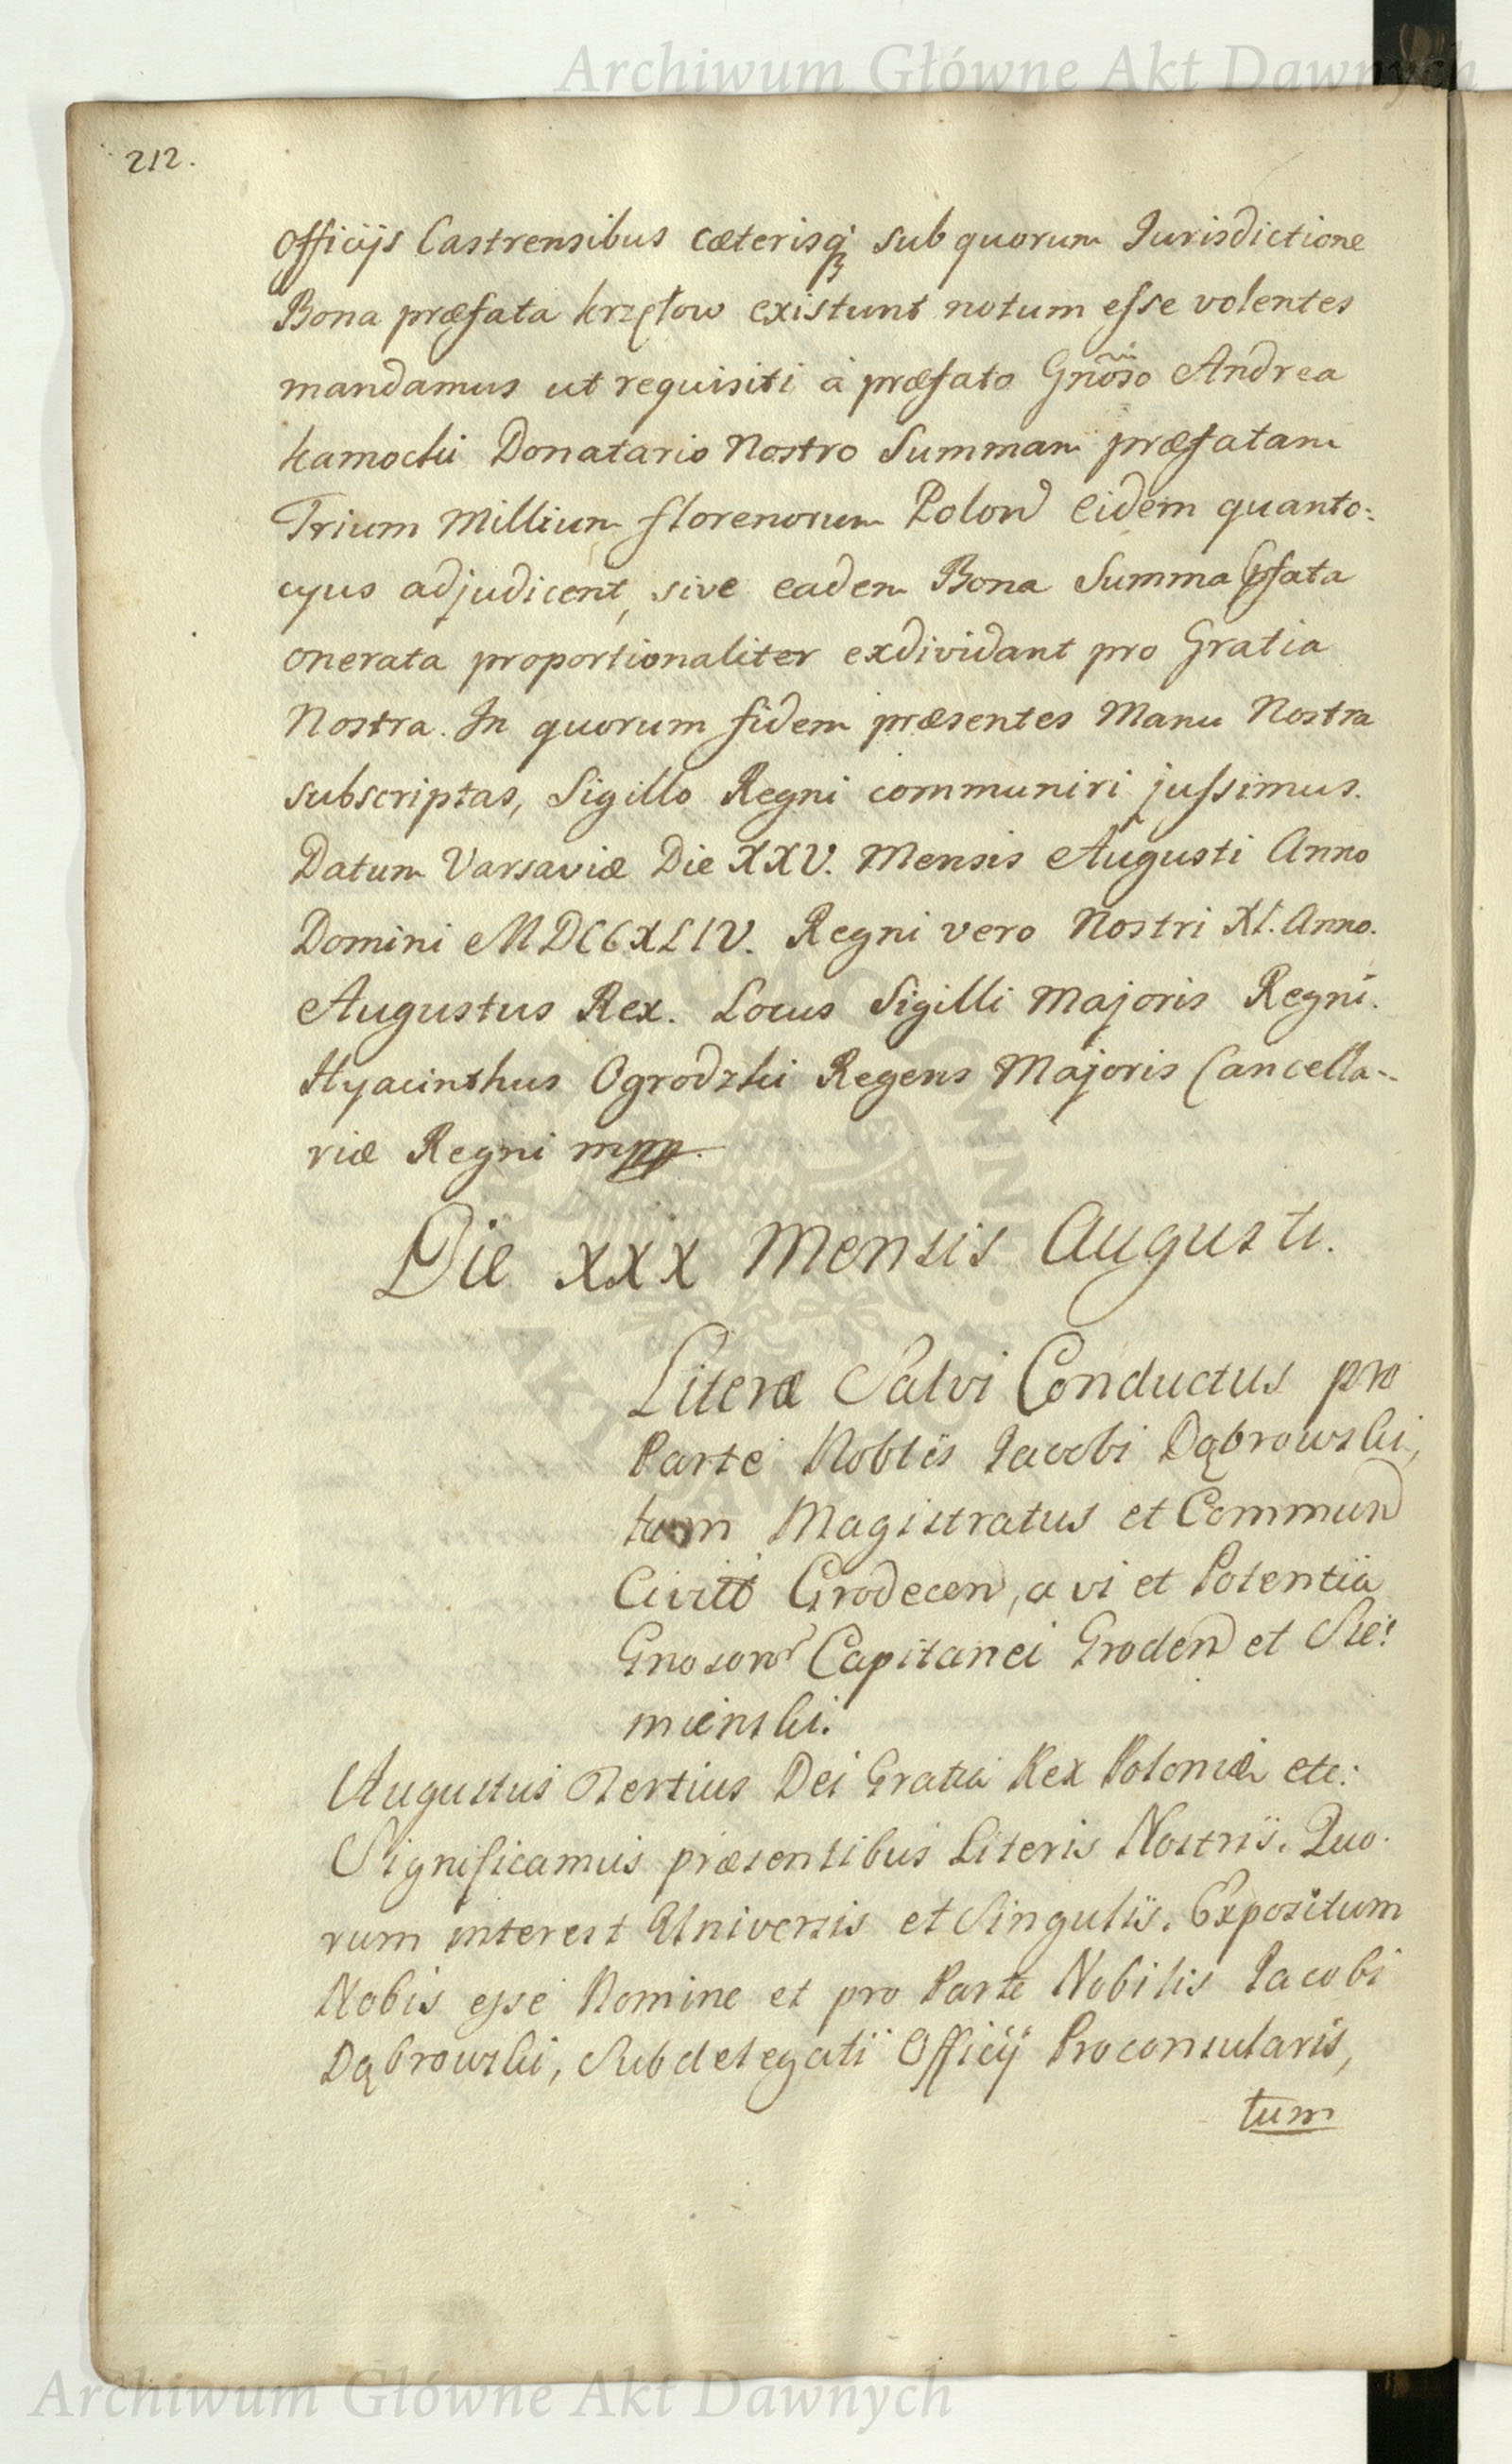 Archiwum Główne Akt Dawnych
212.
Officijs Castrensibus cæterisq₃ sub quorum Jurisdictione
Bona præfata krzętow existunt notum esse volentes
mandamus ut requisiti à præfato Gnoso Andrea
kamocki Donatario Nostro Summam præfatam
Trium Millium florenorum Polon eidem quanto:
cyus adjudicent, sive eadem Bona Summa pfata
onerata proportionaliter exdividant pro Gratia
Nostra. In quorum fidem præsentes Manu Nostra
subscriptas, Sigillo Regni communiri jussimus.
Datum Varsaviæ Die XXV. Mensis Augusti Anno
Domini MDCCXLIV. Regni vero Nostri XI. Anno.
Augustus Rex. Locus Sigilli Majoris Regni.
Hyacinthus Ogrodzki Regens Majoris Cancella-
riæ Regni mpp.
Die xxx Mensis Augusti.
Literæ Salvi Conductus pro
Parte Noblis Jacobi Dąbrowski,
tum Magistratus et Commun
Civitt Grodecen, a vi et Potentia
Gnosor Capitanei Groden et Sie:
mienski.
Augustus Tertius Dei Gratia Rex Poloniæ etc:
Significamus præsentibus Literis Nostris. Quo.
rum interest Universis et Singulis. Expositum
Nobis esse Nomine et pro Parte Nobilis Jacobi
Dąbrowski, Subdelegati Officij Proconsularis,
tum
Archiwum Główne Akt Dawnych